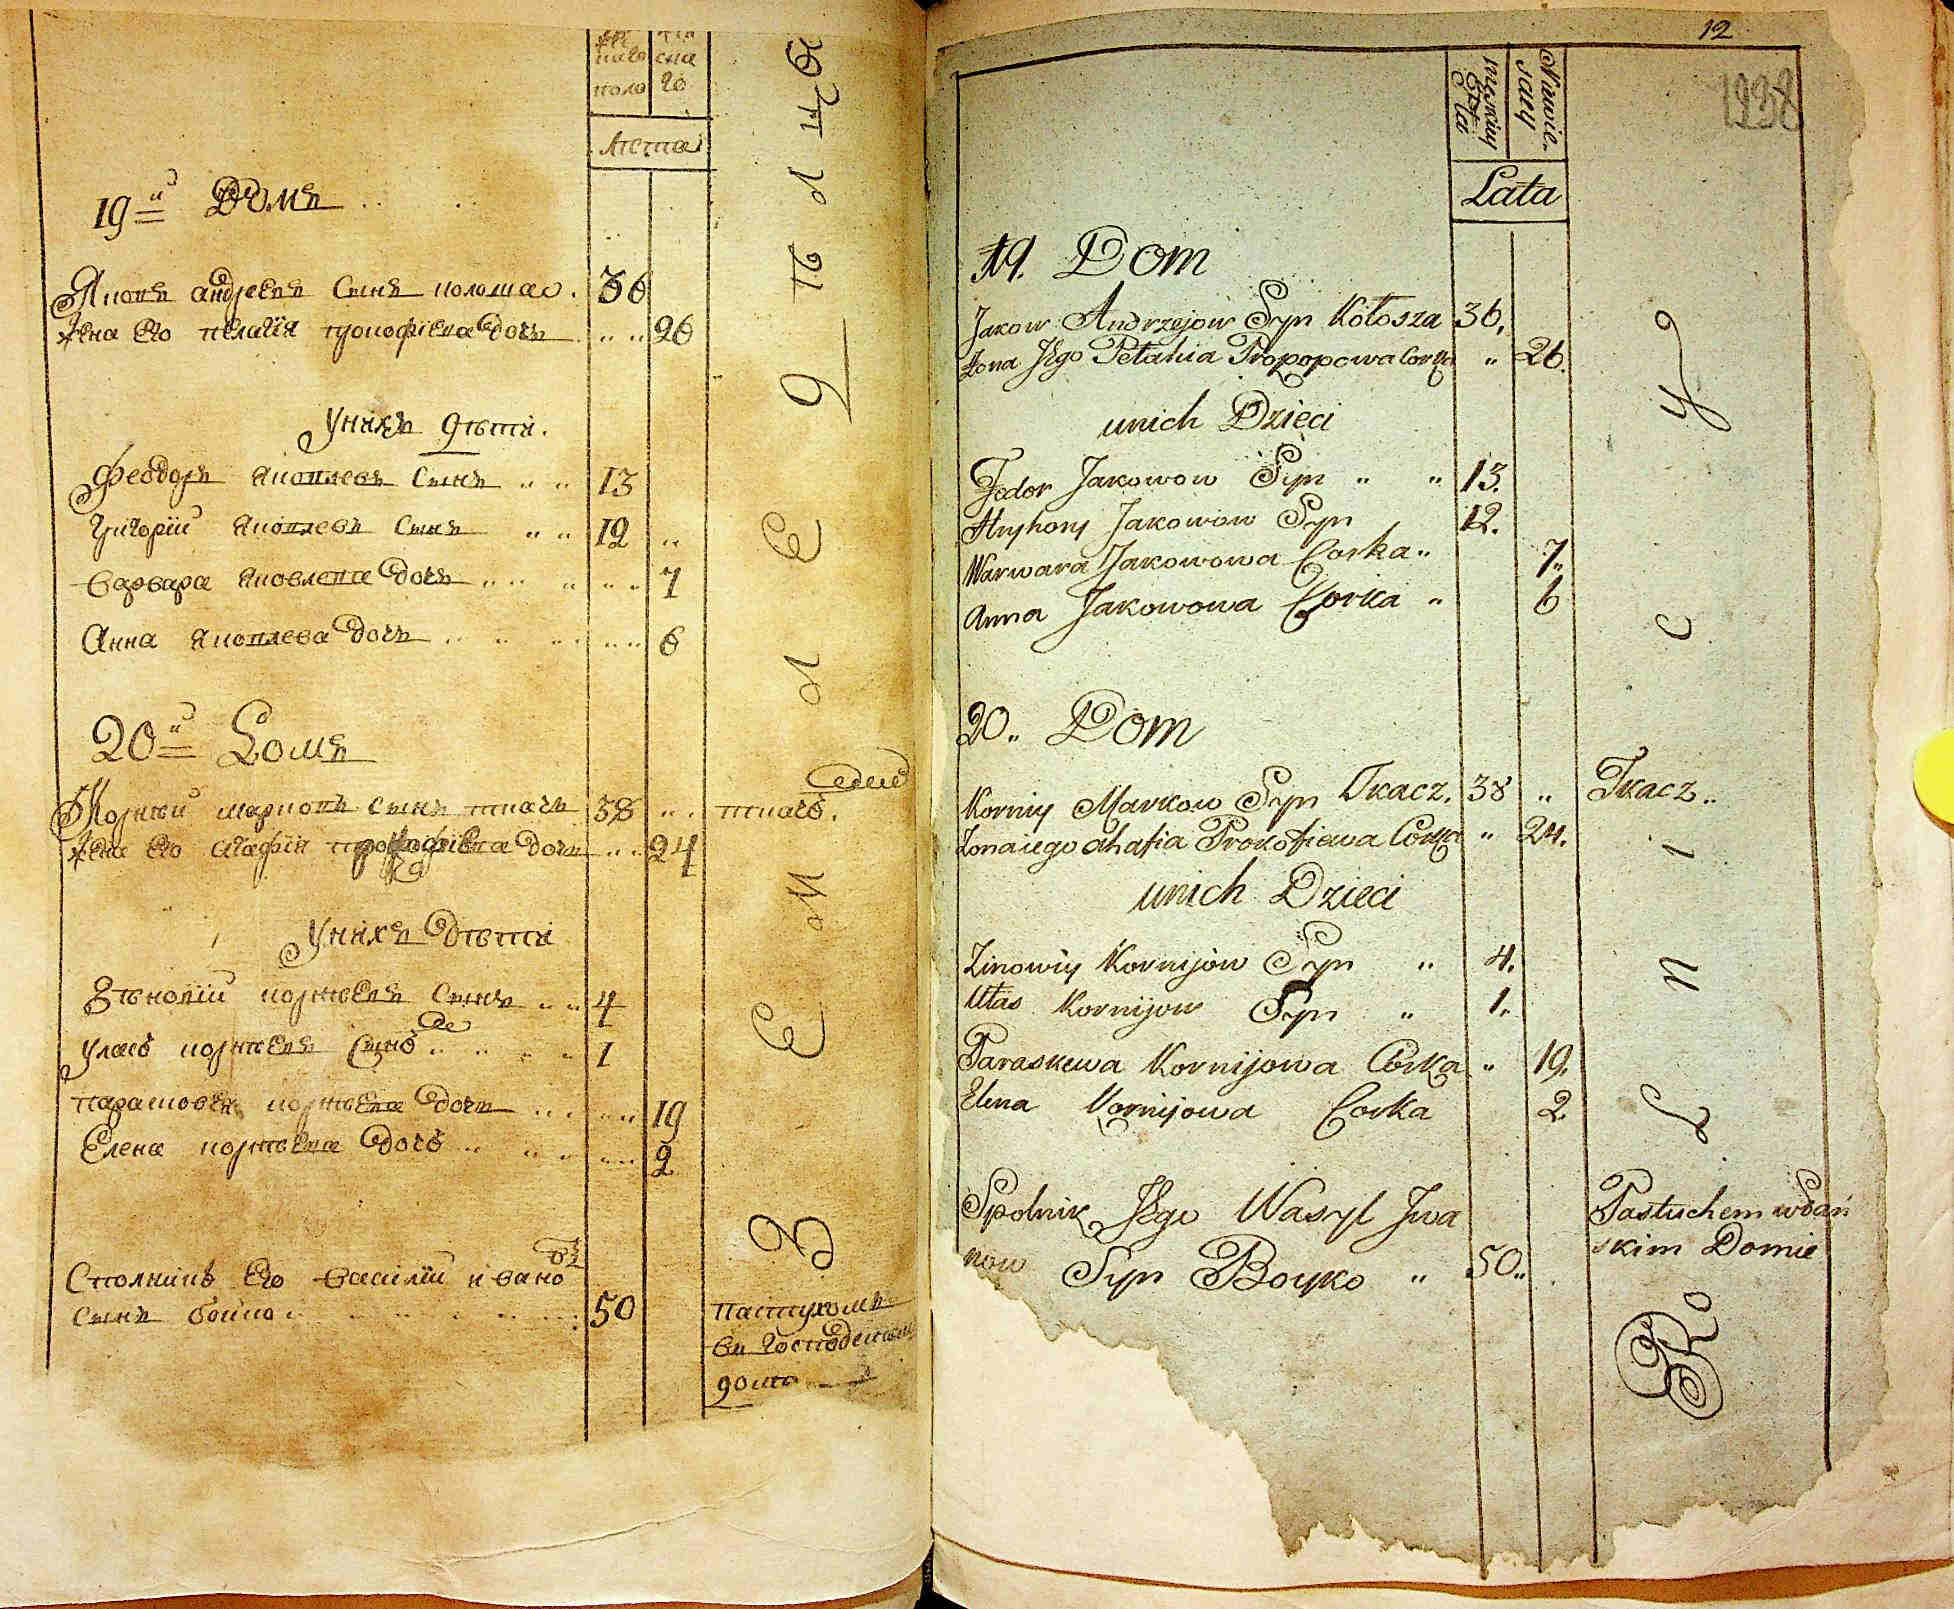 поло го
Лета
19й Домъ
Яковъ андреевъ Сынъ колоша 36
Жена Его пелагія прокофіева Дочь 26
Унихъ Дѣти
Феодоръ Яковлевъ Сынъ 13
Григорій Яковлевъ Сынъ 12
Варвара Яковлева Дочь 7
Анна Яковлева Дочь 6
20й Домъ
Корнѣй марковъ Сынъ ткачъ 38 ткачъ.
Жена Его агафія прокофіева Дочь 24
Унихъ Дѣти
Зѣновій корнѣевъ Сынъ 4
Уласъ корнѣевъ Сынъ 1
парасковъя корнѣева Дочь 19
Елена корнѣева Дочъ 2
Сполникъ Его василій ивановъ
Сынъ бойко 50 пастухомъ
въ Господскомъ
домѣ
З Е М Л Е Д
12
Niewiesciey
męskiey Płci
Lata
19. Dom
Jakow Andrzejow Syn Kołosza 36.
Żona Jego Pełahia Propopowa Corka " 26.
unich Dzieci
Fedor Jakowow Syn " " 13.
Hryhory Jakowow Syn 12.
Warwara Jakowowa Corka " 7.
Anna Jakowowa Corka " 6
20. Dom
Korniy Markow Syn Tkacz. 38 " Tkacz..
Zonaiego Ahafia Prokofiewa Corka " 24.
unich Dzieci
Zinowiy Kornijow Syn " 4.
Ułas Kornijow Syn " 1.
Paraskewa Kornijowa Corka " 19.
Elena Kornijowa Corka 2.
Spolnik Jego Wasyl Iwa Pastuchem wdań
now Syn Boyko " 50.. skim Domie
R o l n i c y